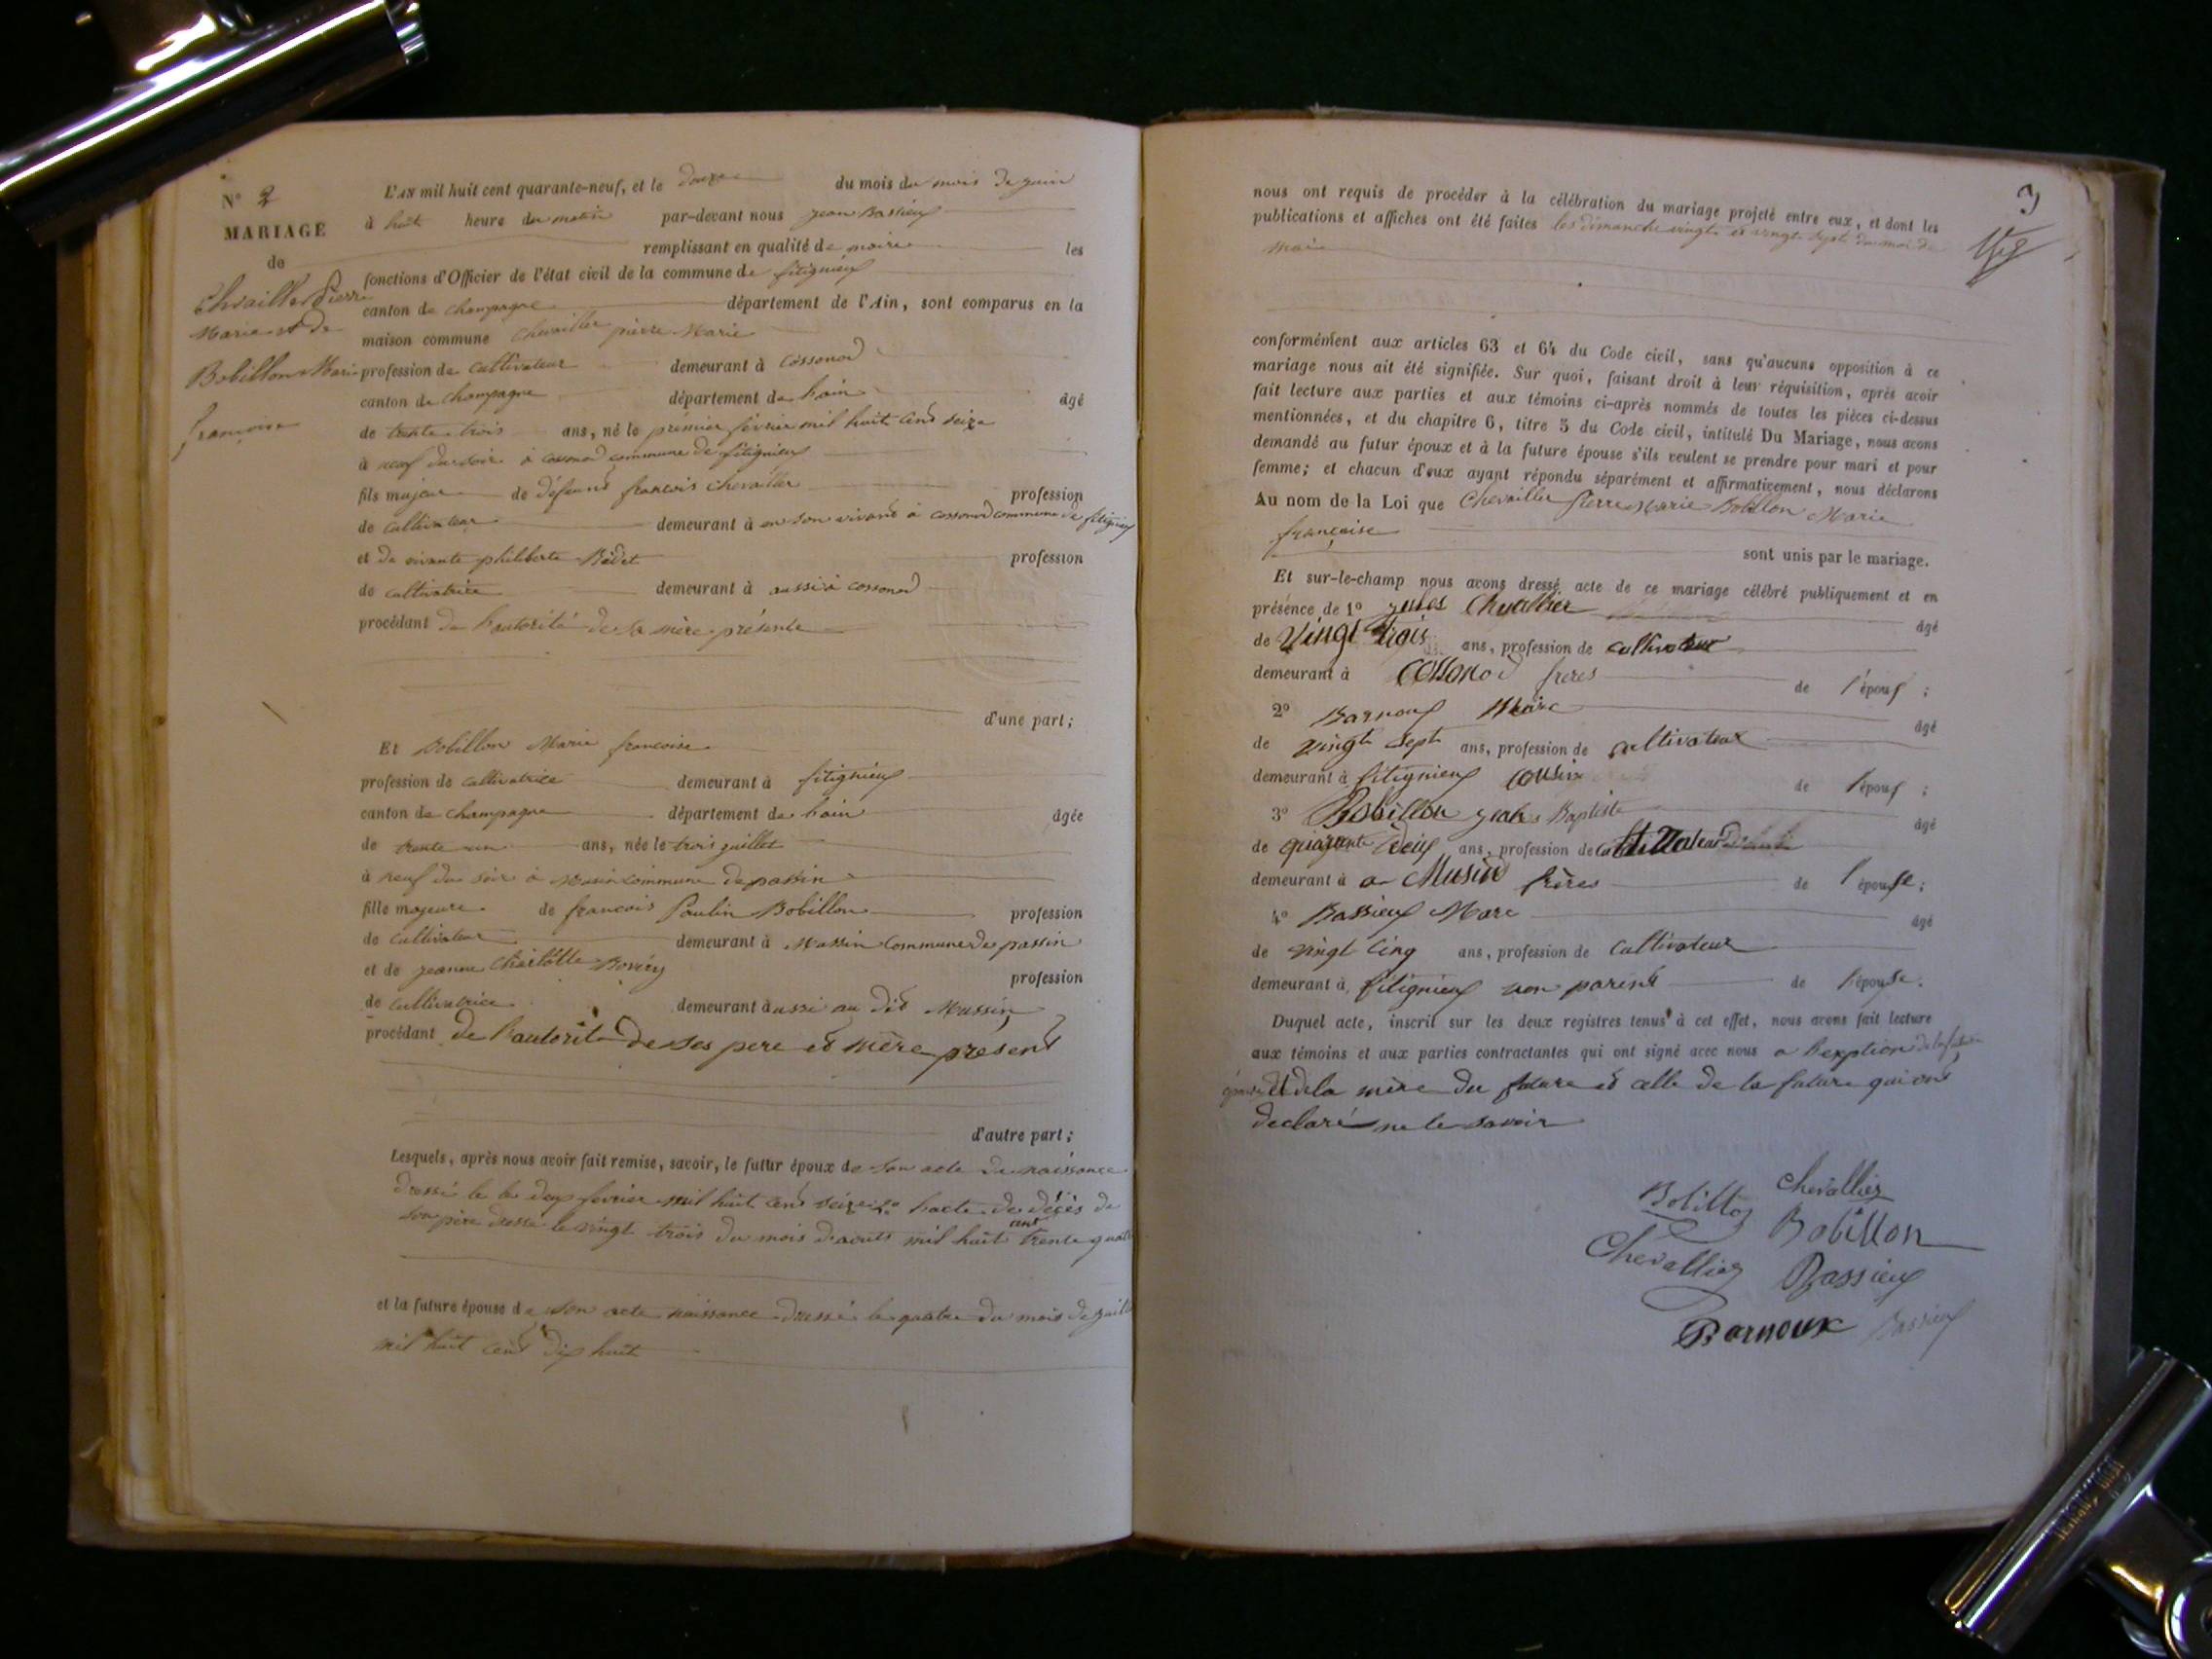 N° 2
MARIAGE
de
Chvailler Pierre
Marie et de
Bobillon Marie
francoise
L'AN mil huit cent quarante-neuf, et le douze du mois du mois de juin
à huit heure du matin par-devant nous jean Bassieux
remplissant en qualité de maire les
fonctions d'Officier de l'état civil de la commune de fitignieux
canton de champagne département de l'Ain, sont comparus en la
maison commune Chevailler pierre Marie
profession de cultivateur demeurant à Cossonod
canton de Champagne département de hain âgé
de trente trois ans, né le premier février mil huit cent seize
à neuf du soir à cossonod commune de fitignieux
fils majeur de défeunt francois chevailler profession
de cultivateur demeurant à en son vivant à cossonod commune de fitignieux
et de vivante philiberte Bedet profession
de cultivatrice demeurant à aussi à cossonod
procédant de hautorité de sa mère présente
d'une part;
Et Bobillon Marie francoise
profession de cultivatrice demeurant à fitignieux
canton de champagne département de hain âgée
de trente un ans, née le trois juillet
à neuf du soir à Musin commune de passin
fille majeure de francois Paulin Bobillon profession
de cultivateur demeurant à Mussin commune de passin
et de jeanne Charlotte profession
de cultivatrice demeurant à aussi au dit Mussin
procédant de hautorité de ses pere et mère present
d'autre part;
Lesquels, après nous avoir fait remise, savoir, le futur époux de son acte de naissance
dressé le le deux fevrier mil huit cent seize 2° hacte de décès de
son père dressé le vingt trois du mois daouts mil huit cent trente quatre
et la future épouse de son acte naissance dressé le quatre du mois de juillet
mil huit cent dix huit
3
nous ont requis de procéder à la célébration du mariage projeté entre eux, et dont les
publications et affiches ont été faites les dimanche vingt et vingt sept du moi de
mai
conformément aux articles 63 et 64 du Code civil, sans qu'aucune opposition à ce
mariage nous ait été signifiée. Sur quoi, faisant droit à leur réquisition, après avoir
fait lecture aux parties et aux témoins ci-après nommés de toutes les pièces ci-dessus
mentionnées, et du chapitre 6, titre 5 du Code civil, intitulé Du Mariage, nous avons
demandé au futur époux et à la future épouse s'ils veulent se prendre pour mari et pour
femme; et chacun d'eux ayant répondu séparément et affirmativement, nous déclarons
Au nom de la Loi que Chevailler Pierre Marie Bobillon Marie
françoise
sont unis par le mariage.
Et sur-le-champ nous avons dressé acte de ce mariage célébré publiquement et en
présence de 1° Chvallier âgé
de Vingt trois ans, profession de cultivateur
demeurant à Cossonod freres de l'époux;
2° Barnoux Marc âgé
de vingt sept ans, profession de cultivateur
demeurant à fitignieux cousin de l'époux;
3° Bobillon jean Baptiste âgé
de quarante deux ans, profession de cultivateur
demeurant à a Musin frères de l'épouse;
4° Bassieux Marc âgé
de vingt cinq ans, profession de cultivateur
demeurant à fitignieux non parent de l'épouse.
Duquel acte, inscrit sur les deux registres tenus à cet effet, nous avons fait lecture
aux témoins et aux parties contractantes qui ont signé avec nous a hexption de la future
épouse et de la mère du future et celle de la future qui ont
declaré ne le savoir
Bobillon Chevallier
Chevallier Bobillon
Bassieux
Barnoux Bassieux